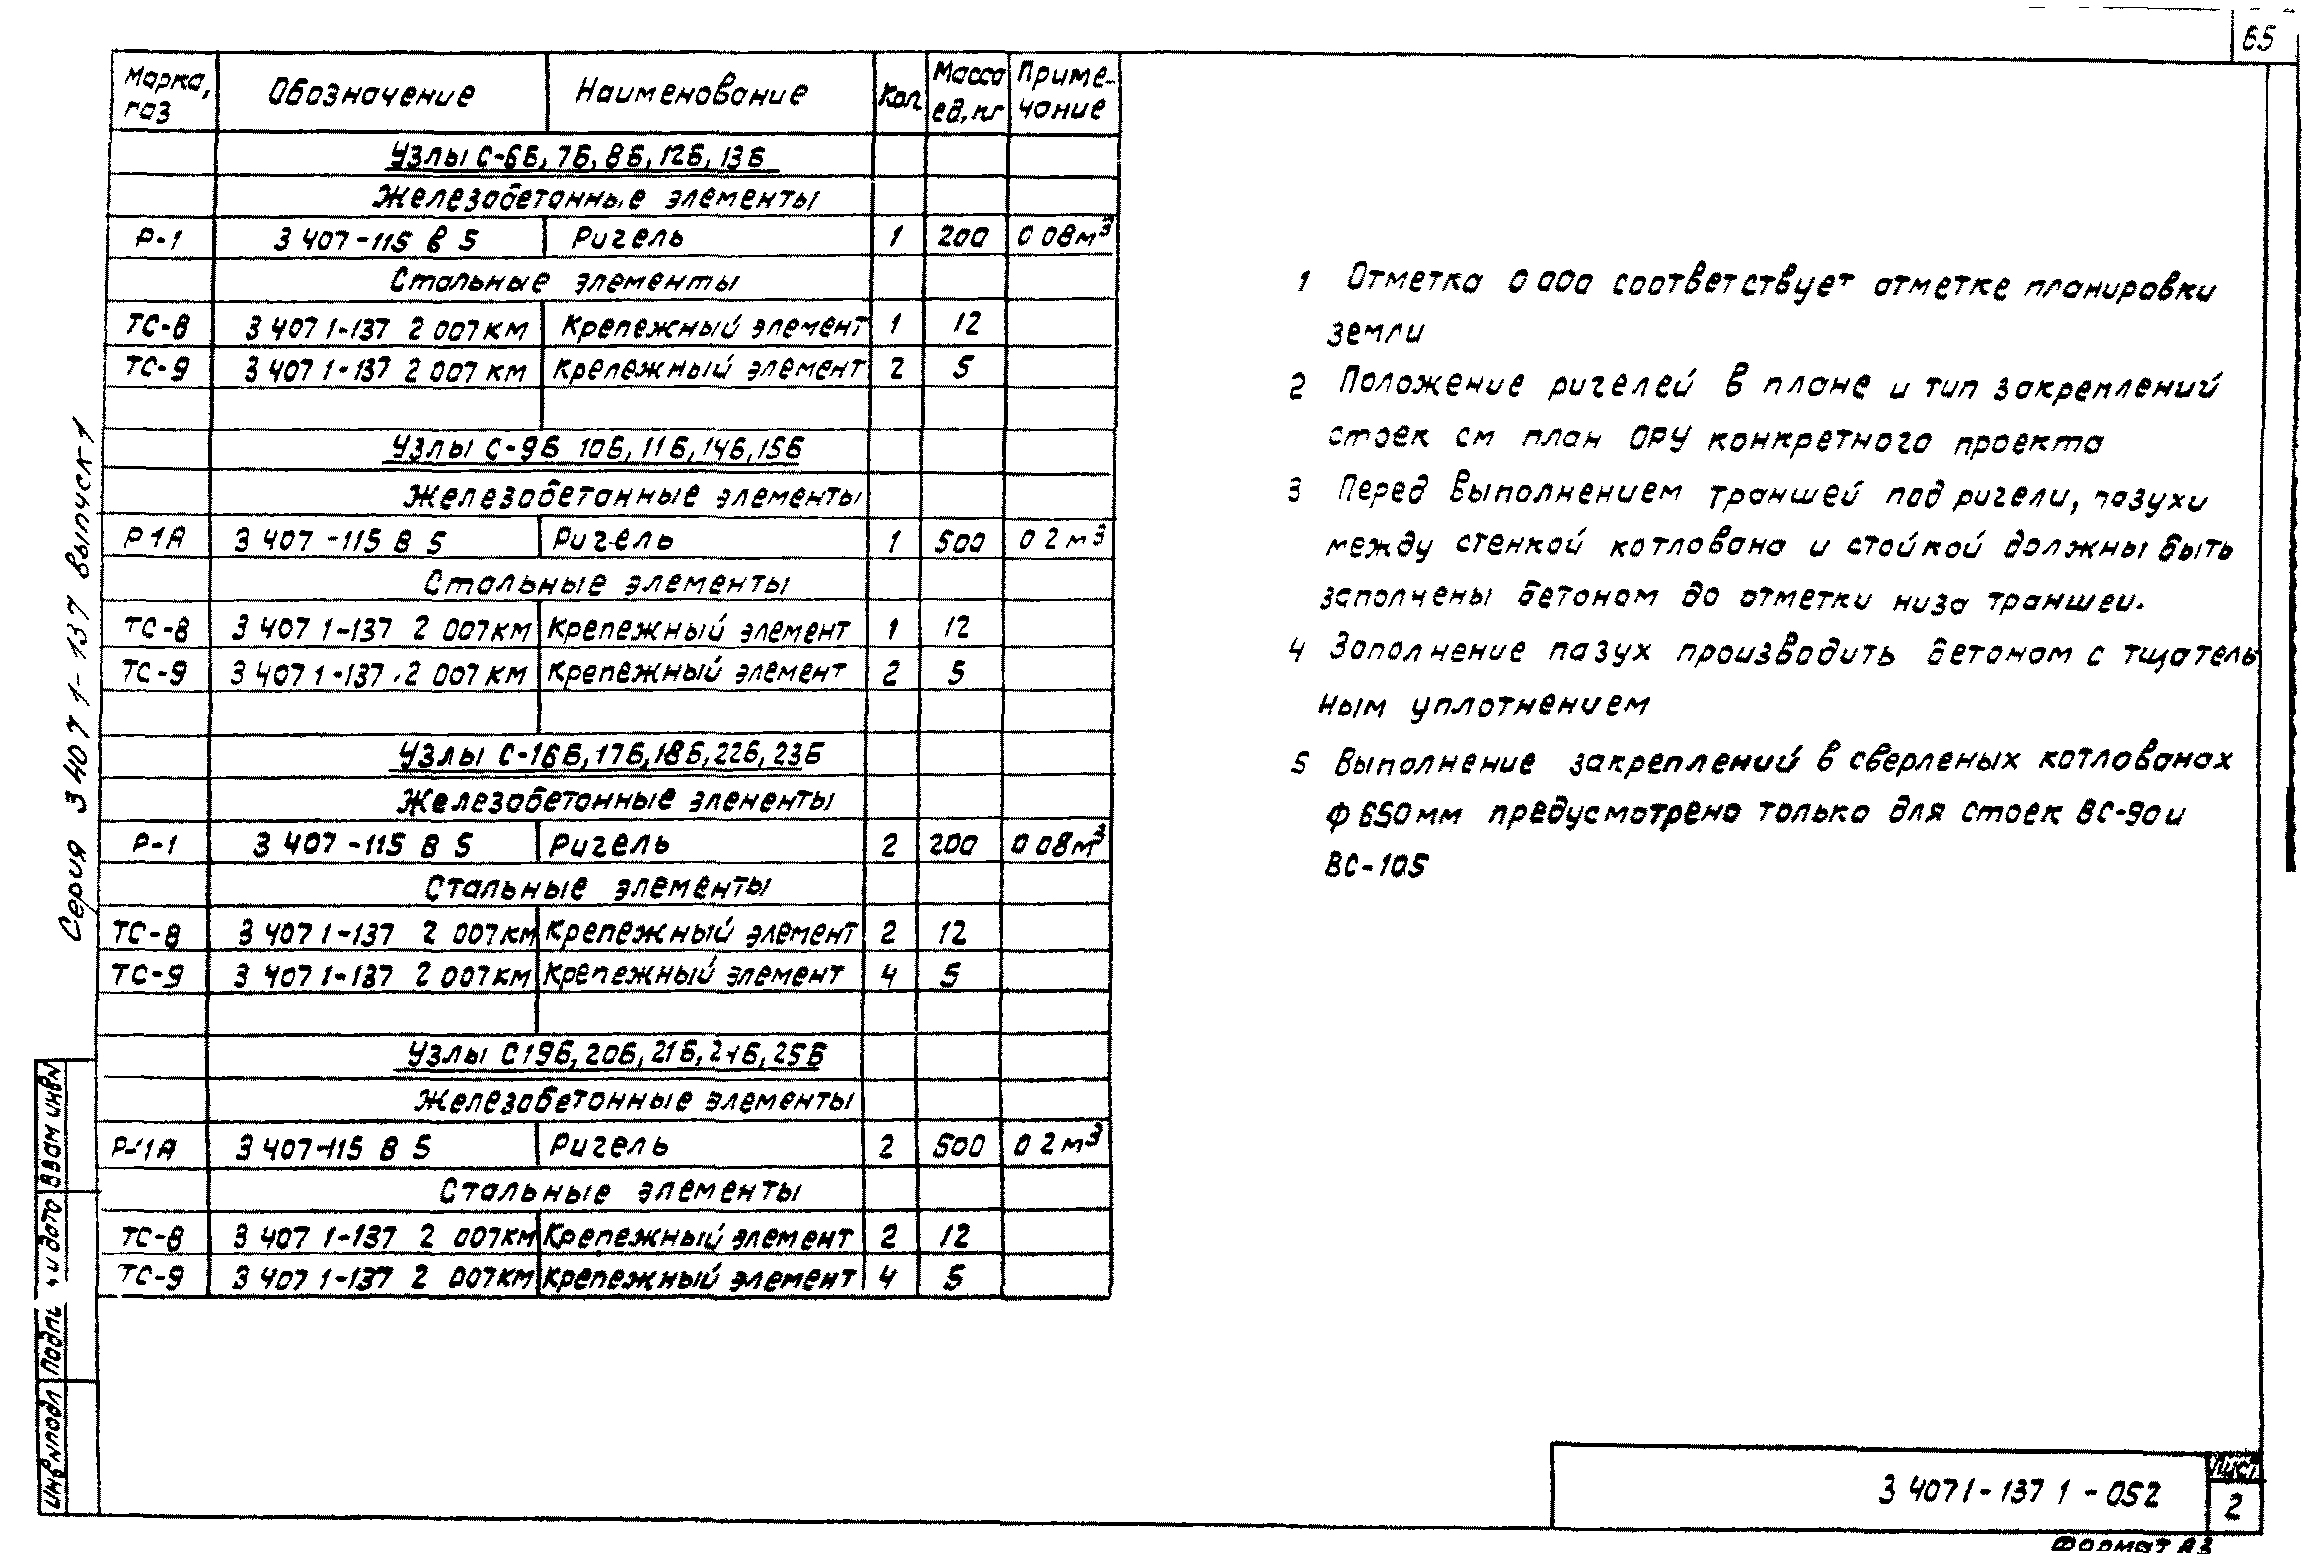 65
Марка, поз | Обозначение | Наименование | Кол | Масса ед, кг | Приме-чание
Узлы С-6Б, 7Б, 8Б, 12Б, 13Б
Железобетонные элементы
Р-1 3 407-115 в 5 Ригель 1 200 0 08м³
Стальные элементы
ТС-8 3 407 1-137 2 007км Крепежный элемент 1 12
ТС-9 3 407 1-137 2 007км Крепежный элемент 2 5
Узлы С-9Б 10Б, 11Б, 14Б, 15Б
Железобетонные элементы
Р 1А 3 407-115 В 5 Ригель 1 500 0 2 м³
Стальные элементы
ТС-8 3 407 1-137 2 007км Крепежный элемент 1 12
ТС-9 3 407 1-137.2 007км Крепежный элемент 2 5
Узлы С-16Б, 17Б, 18Б, 22Б, 23Б
Железобетонные элементы
Р-1 3 407-115 В 5 Ригель 2 200 0 08м³
Стальные элементы
ТС-8 3 407 1-137 2 007км Крепежный элемент 2 12
ТС-9 3 407 1-137 2 007км Крепежный элемент 4 5
Узлы С19Б, 20Б, 21Б, 24Б, 25Б
Железобетонные элементы
Р-1А 3 407-115 В 5 Ригель 2 500 0 2 м³
Стальные элементы
ТС-8 3 407 1-137 2 007км Крепежный элемент 2 12
ТС-9 3 407 1-137 2 007км Крепежный элемент 4 5
1 Отметка 0 000 соответствует отметке планировки
земли
2 Положение ригелей в плане и тип закреплений
стоек см план ОРУ конкретного проекта
3 Перед выполнением траншей под ригели, пазухи
между стенкой котлована и стойкой должны быть
заполнены бетоном до отметки низа траншеи.
4 Заполнение пазух производить бетоном с тщатель
ным уплотнением
5 Выполнение закреплений в сверленых котлованах
ф 650мм предусмотрено только для стоек ВС-90 и
ВС-105
Серия 3 407 1-137 выпуск 1
Взам инв№
Подпь и дата
Инв№подл
3 407 1-137 1-052
Лист
2
Формат А3